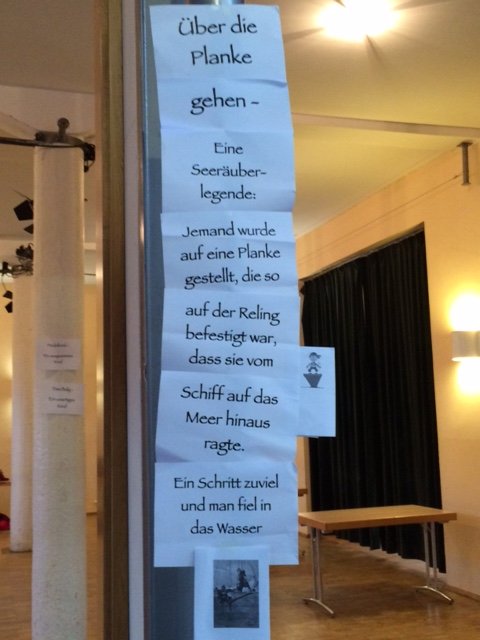 Über die
Planke
gehen -
Eine
Seeräuber-
legende:
Jemand wurde
auf eine Planke
gestellt, die so
auf der Reling
befestigt war,
dass sie vom
Schiff auf das
Meer hinaus
ragte.
Ein Schritt zuviel
und man fiel in
das Wasser